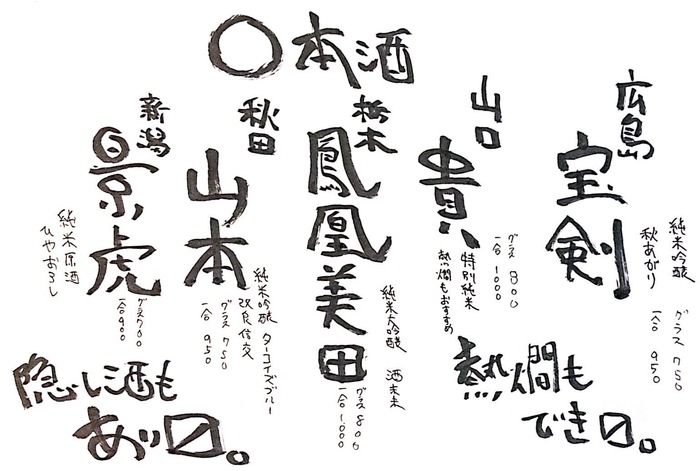 〇本酒
広島
宝剣
純米吟醸
秋あがり
グラス 750
一合 950
山口
貴
特別純米
熱燗もおすすめ
グラス 800
一合 1000
栃木
鳳凰美田
純米大吟醸 酒未来
グラス800
一合1000
秋田
山本
純米吟醸 ターコイズブルー
改良信交
グラス 750
一合 950
新潟
景虎
純米原酒
ひやおろし
グラス700
一合900
熱燗も
でき〼。
隠し酒も
あり〼。